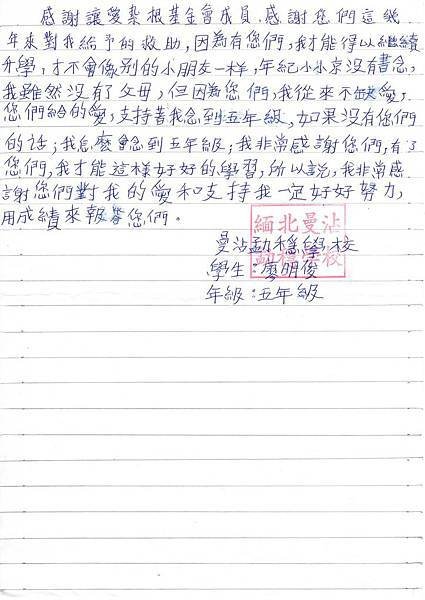 感謝讓愛紮根基金會成員，感謝您們這幾
年來對我給予的救助，因為有您們，我才能得以繼續
升學，才不會像別的小朋友一樣，年紀小小就沒有書念，
我雖然沒有了父母，但因為您們，我從來不缺愛，
您們給的愛，支持著我念到五年級，如果沒有您們
的話；我怎麼會念到五年級；我非常感謝您們，有了
您們，我才能這樣好好的學習，所以說，我非常感
謝您們對我的愛和支持我一定好好努力，
用成績來報答您們。
緬北曼沾
勐穩學校
曼沾勐穩學校
學生：廖明俊
年級：五年級